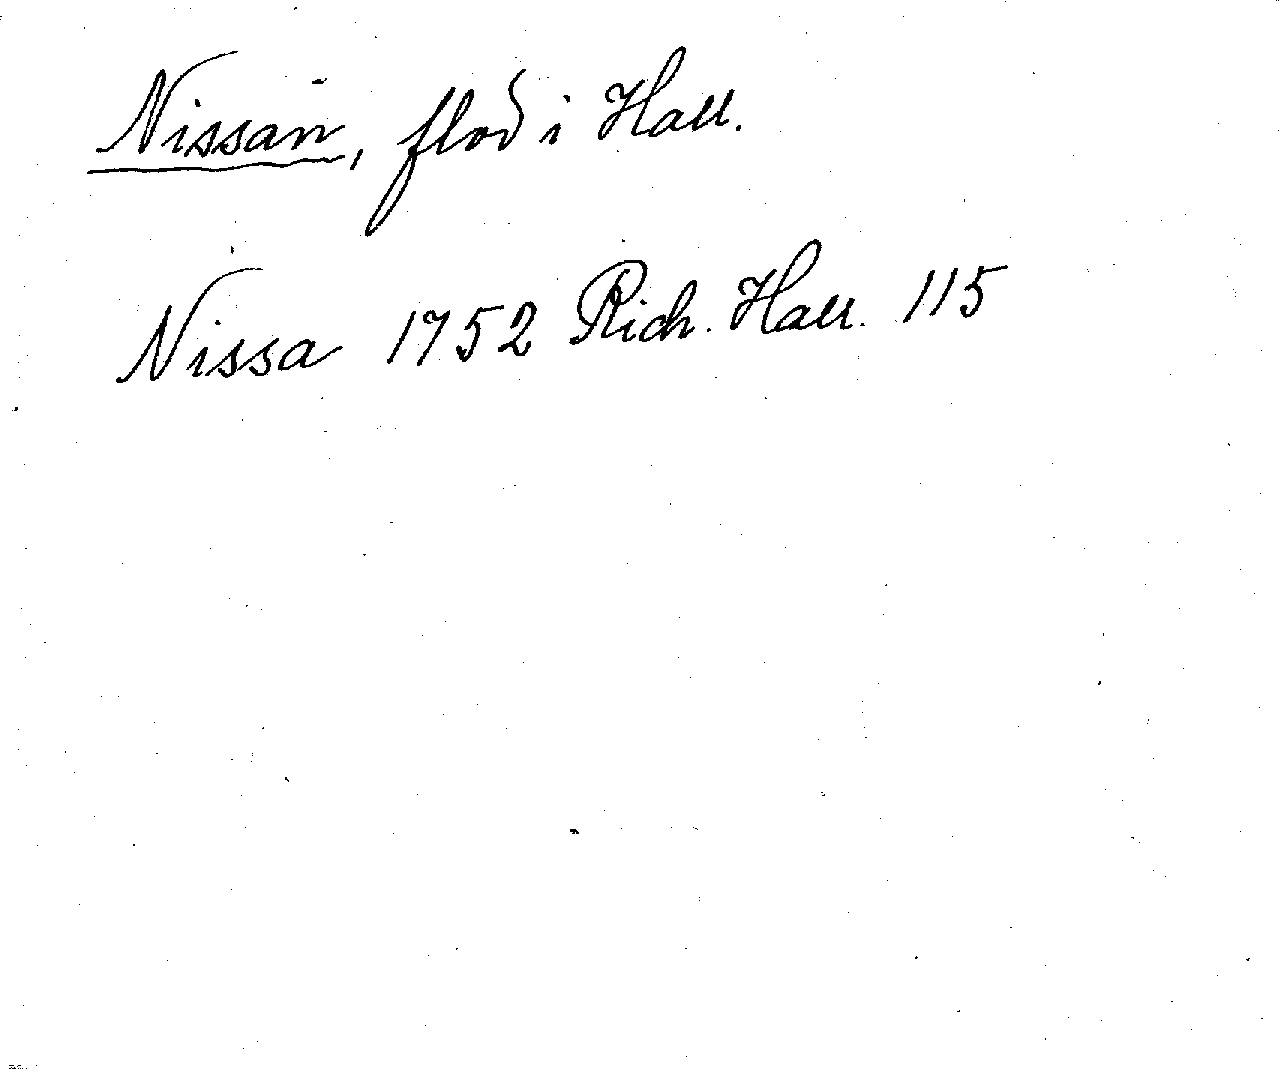 Nissan, flod i Hall.
Nissa 1752 Rich. Hall. 115